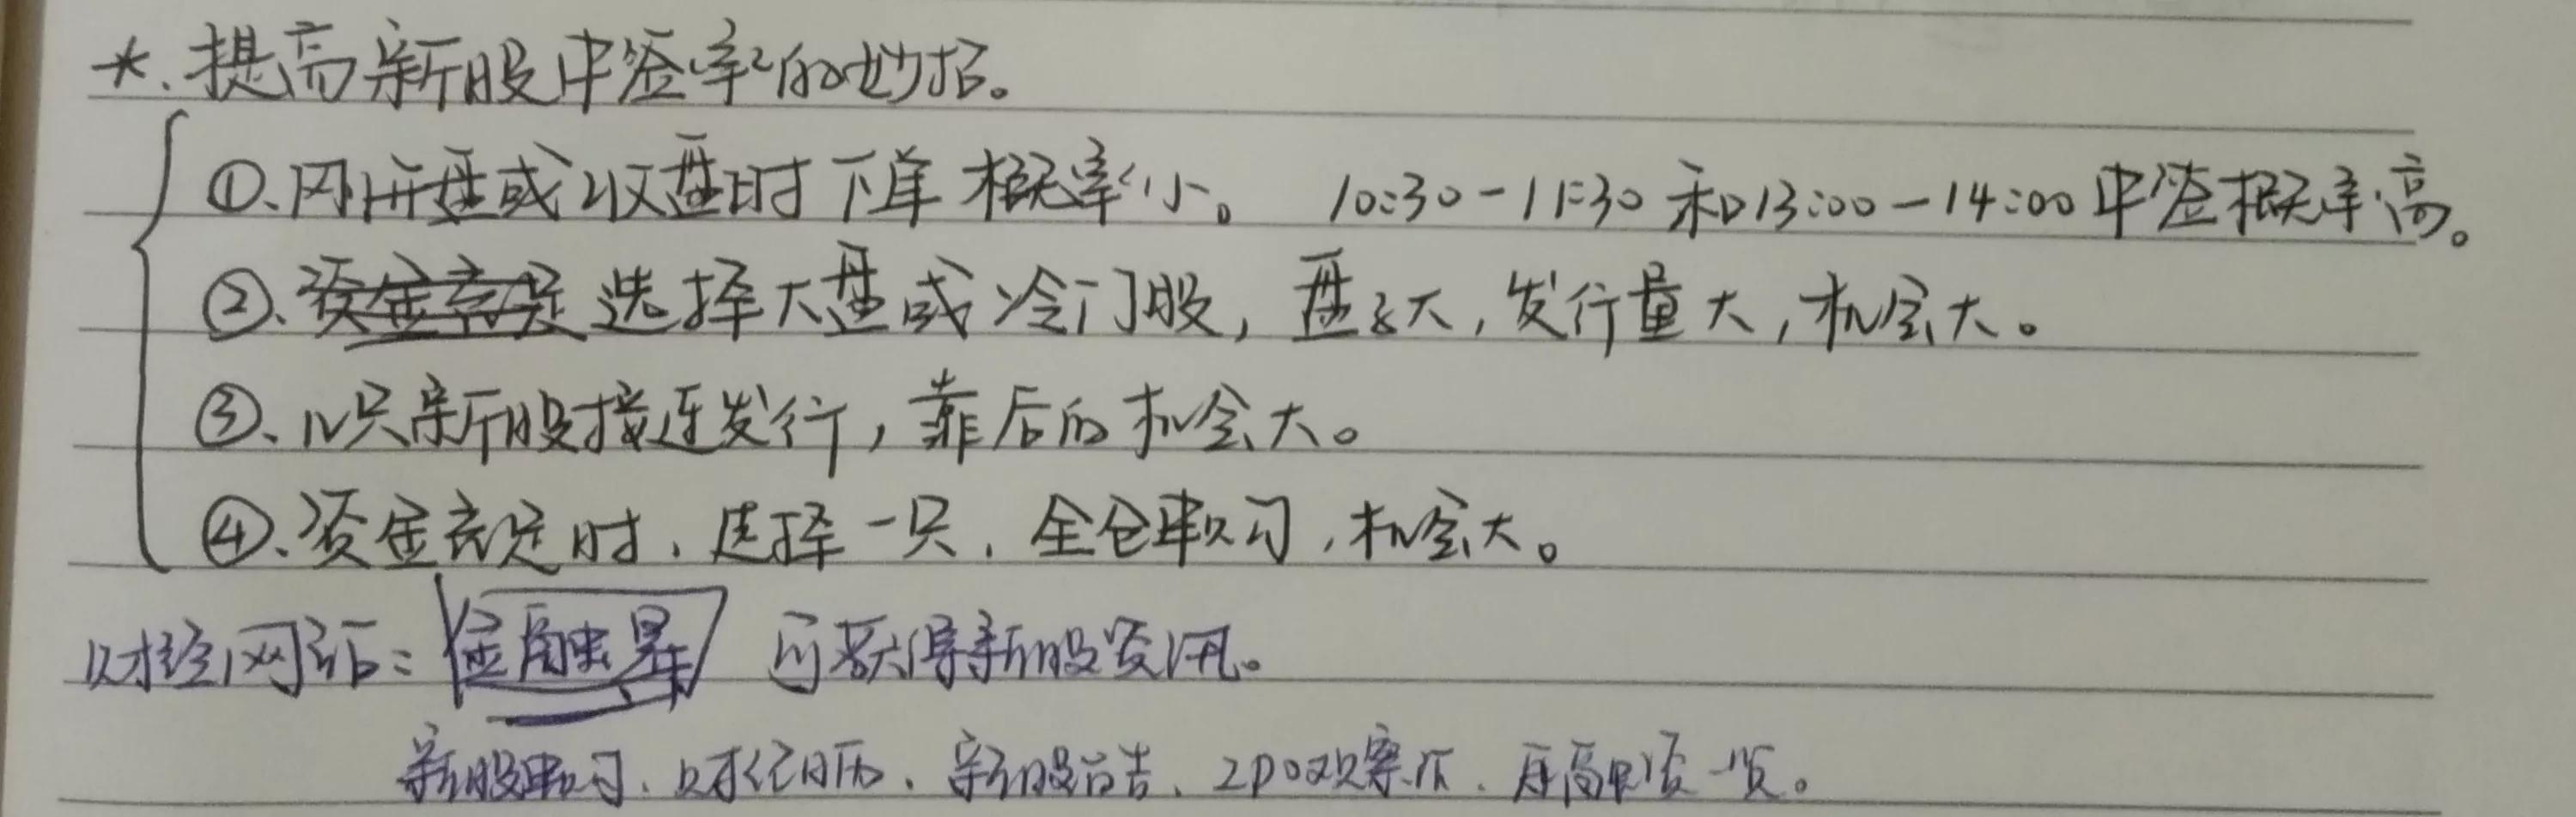 *.提高新股中签率的妙招。
①、刚开盘或收盘时下单概率小。 10:30-11:30和13:00-14:00中签概率高。
②、资金充足选择大盘或冷门股,盘子大,发行量大,机会大。
③、几只新股接连发行,靠后的机会大。
④、资金充足时,选择一只,全仓申购,机会大。
财经网站:金融界 可获得新股资讯。
新股申购、财经日历、新股预告、IPO观察、一览。